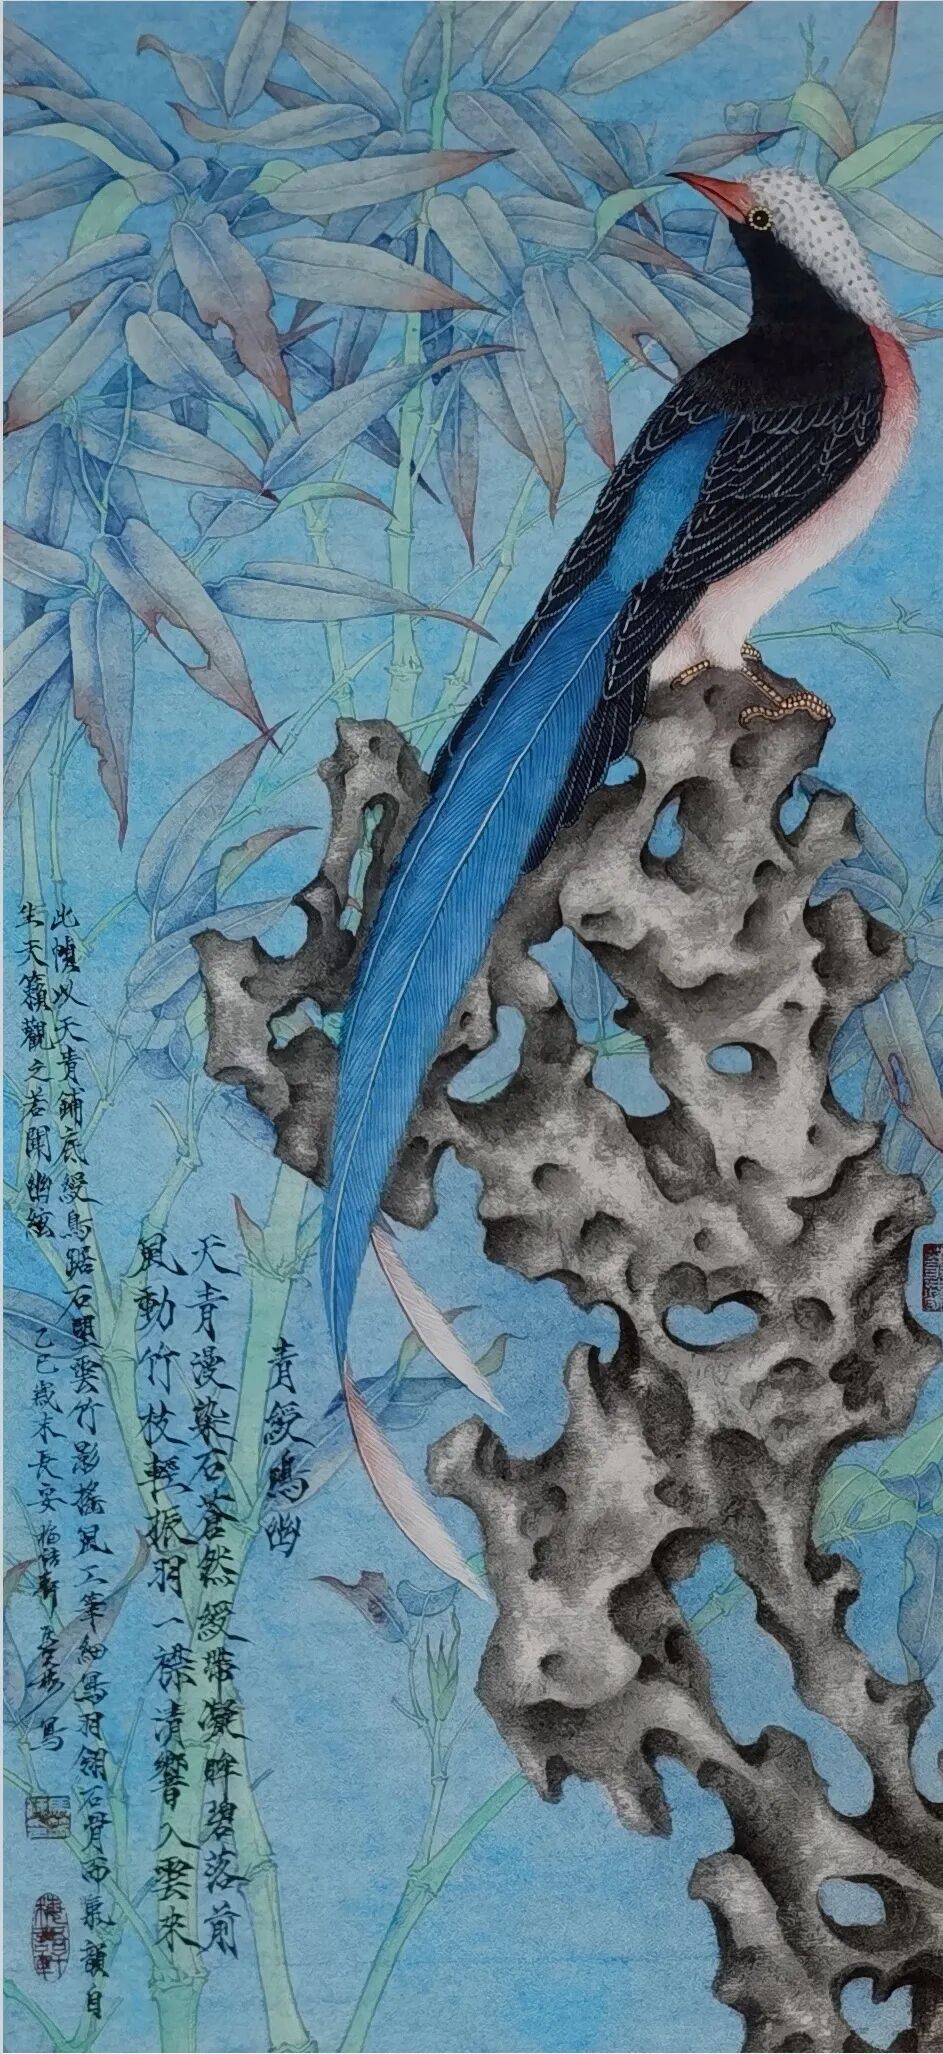 青綬鳴幽
天青漫染石蒼然綬帶凝眸碧落前
風動竹枝輕振羽一襟清響入雲來
此幀以天青鋪底綬鳥踞石望雲竹影搖風工筆細寫羽翎石骨而氣韻自
生天籟觀之若聞幽絃
乙巳歲末長安 寫